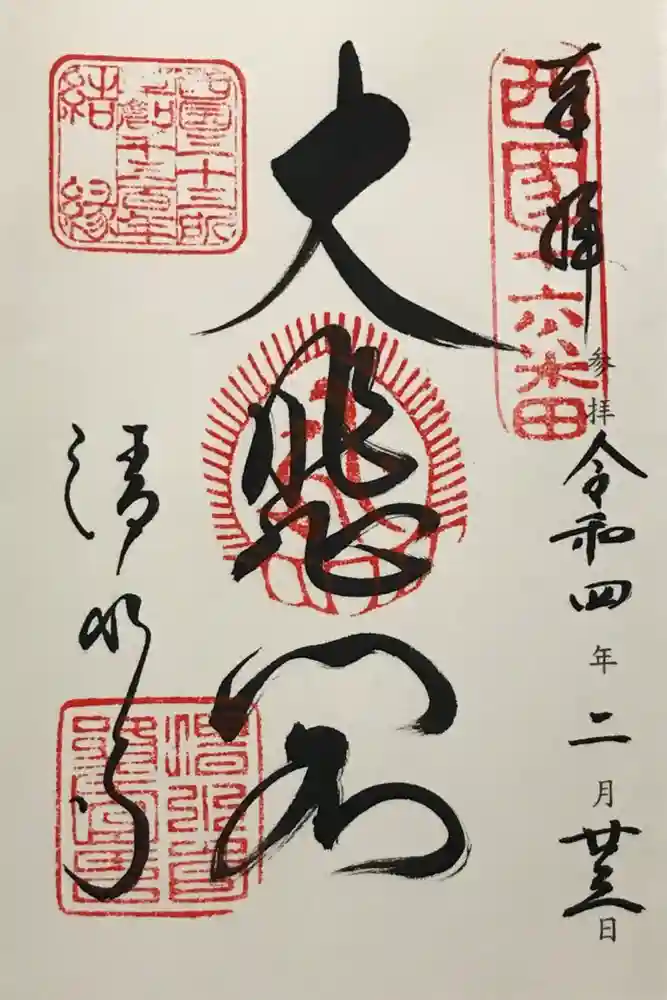 西國十六番
奉拝
参拝令和四年二月廿三日
大悲閣
西国三十三所
草創千三百年
結縁
清水寺